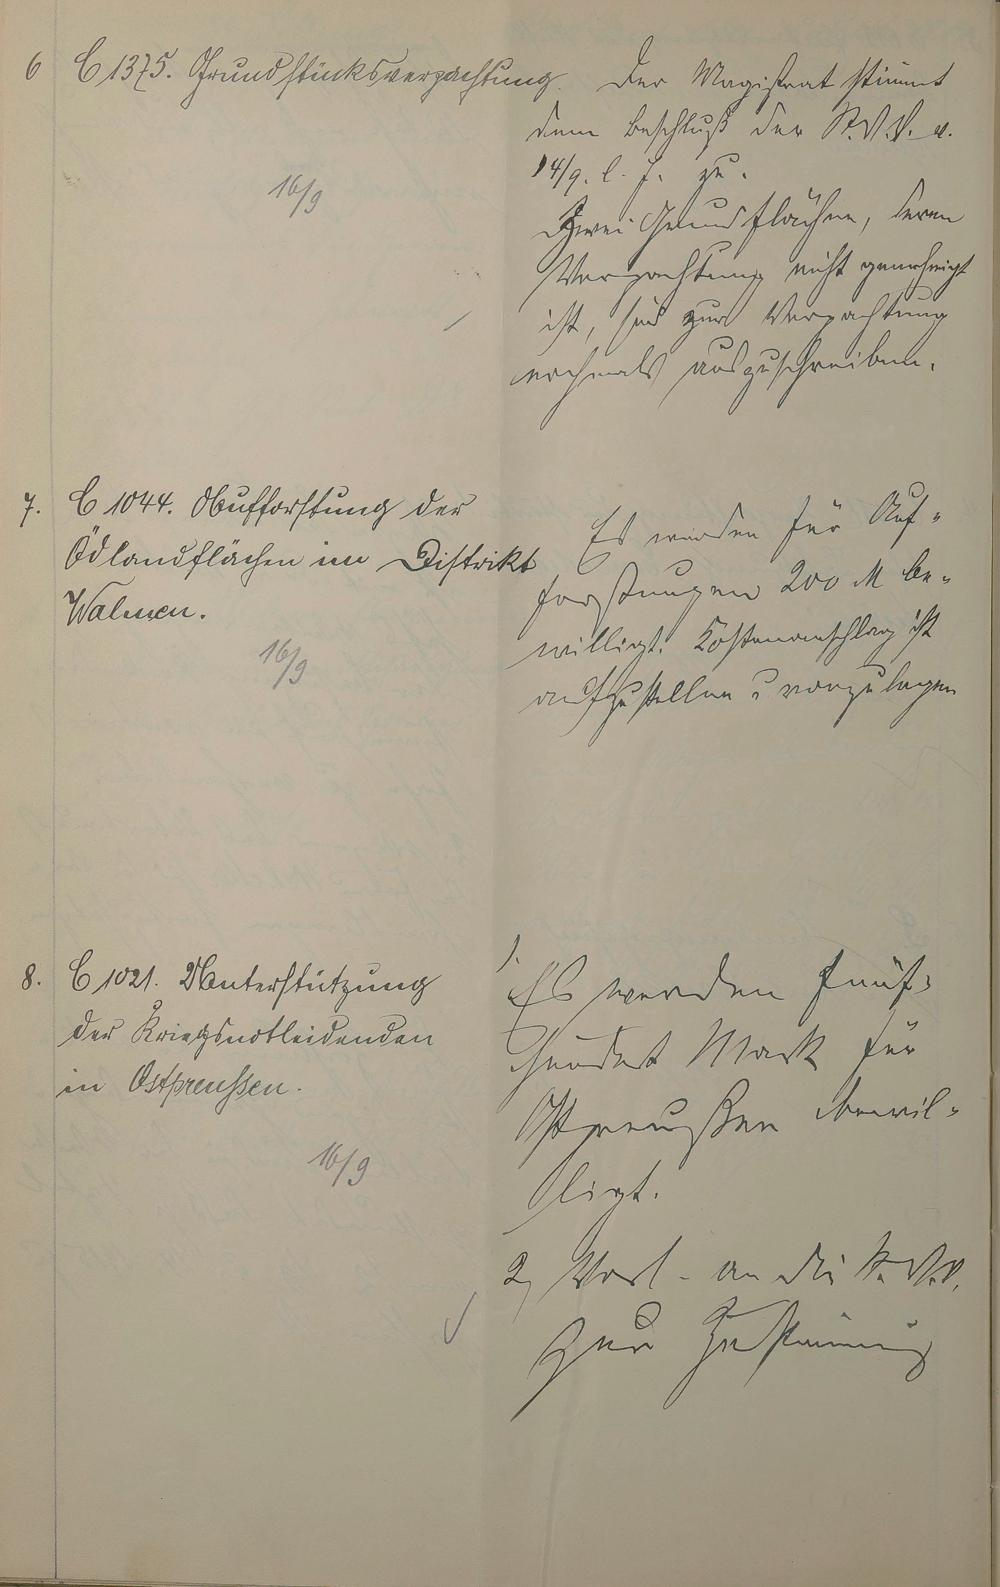 6 C 1375. Grundstücksverpachtung.
16/9
Der Magistrat stimmt
dem Beschluß der St.V.V. v.
14/9. l. J. zu.
Zwei Grundflächen, deren
Verpachtung nicht genehmigt
ist, sind zur Verpachtung
nochmals auszuschreiben.
7. C 1044. Aufforstung der
Ödlandflächen im Distrikt
Walmen.
16/9
Es werden für Auf-
forstungen 200 M be-
willigt. Kostenanschlag ist
aufzustellen u vorzulegen
8. C 1021. Unterstützung
der Kriegsnotleidenden
in Ostpreußen.
16/9
1.
Es werden Fünf-
hundert Mark für
Ostpreußen bewil-
ligt.
2, Vorl. an die St.V.V.
zur Zustimmung